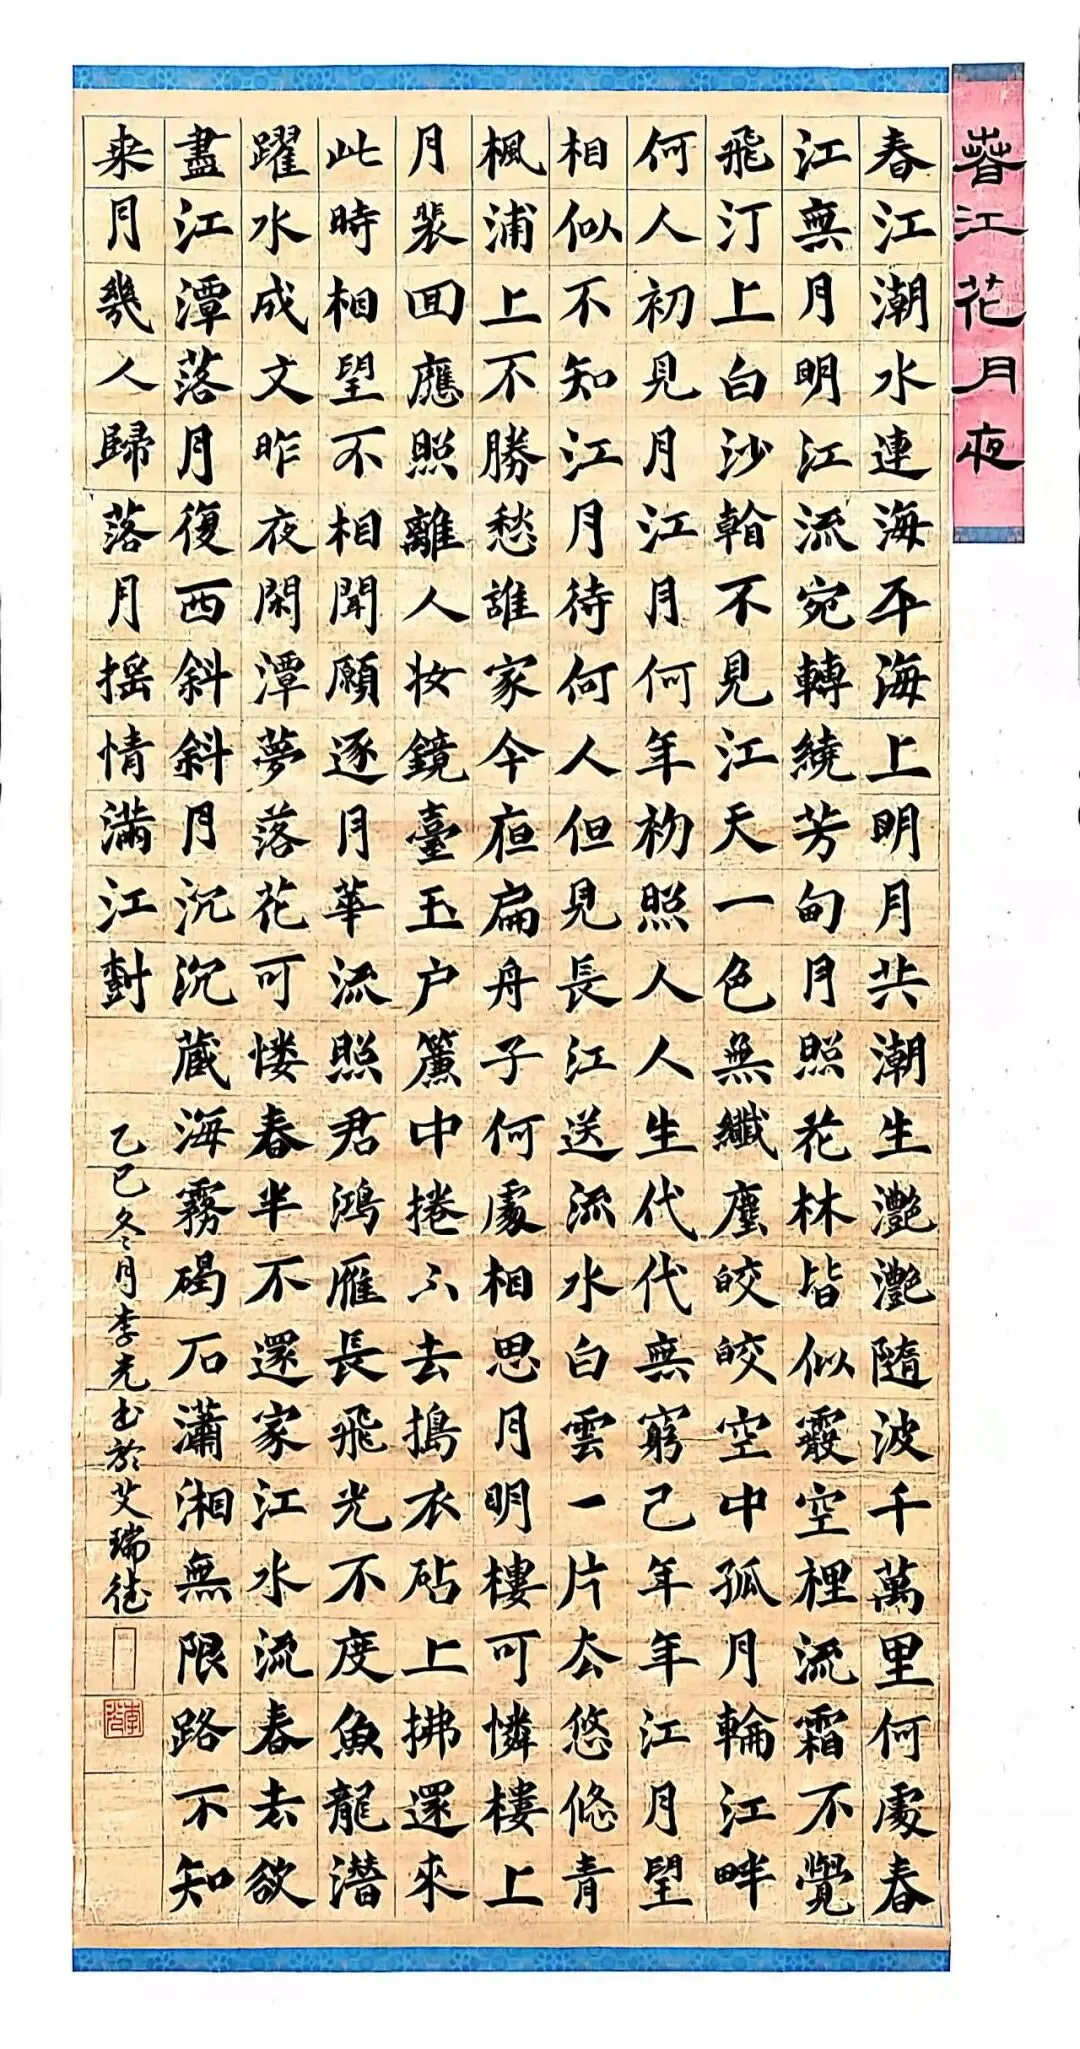 春江花月夜
春江潮水連海平海上明月共潮生灧灧隨波千萬里何處春
江無月明江流宛轉繞芳甸月照花林皆似霰空裡流霜不覺
飛汀上白沙看不見江天一色無纖塵皎皎空中孤月輪江畔
何人初見月江月何年初照人人生代代無窮已年年江月望
相似不知江月待何人但見長江送流水白雲一片去悠悠青
楓浦上不勝愁誰家今夜扁舟子何處相思月明樓可憐樓上
月裴回應照離人妝鏡臺玉户簾中捲不去搗衣砧上拂還來
此時相望不相聞願逐月華流照君鴻雁長飛光不度魚龍潛
躍水成文昨夜閑潭夢落花可憐春半不還家江水流春去欲
盡江潭落月復西斜斜月沉沉藏海霧碣石瀟湘無限路不知
乘月幾人歸落月摇情滿江樹
乙巳冬月李光書於艾瑞德
李光